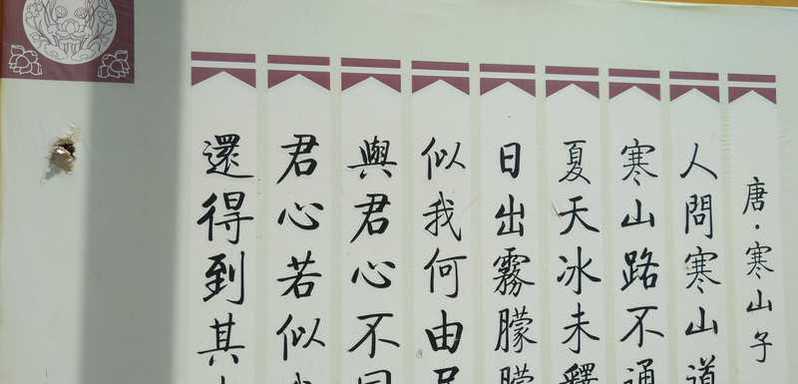 唐·寒山子
人問寒山道
寒山路不通
夏天冰未釋
日出霧朦
似我何由
與君心不
君心若似
還得到其